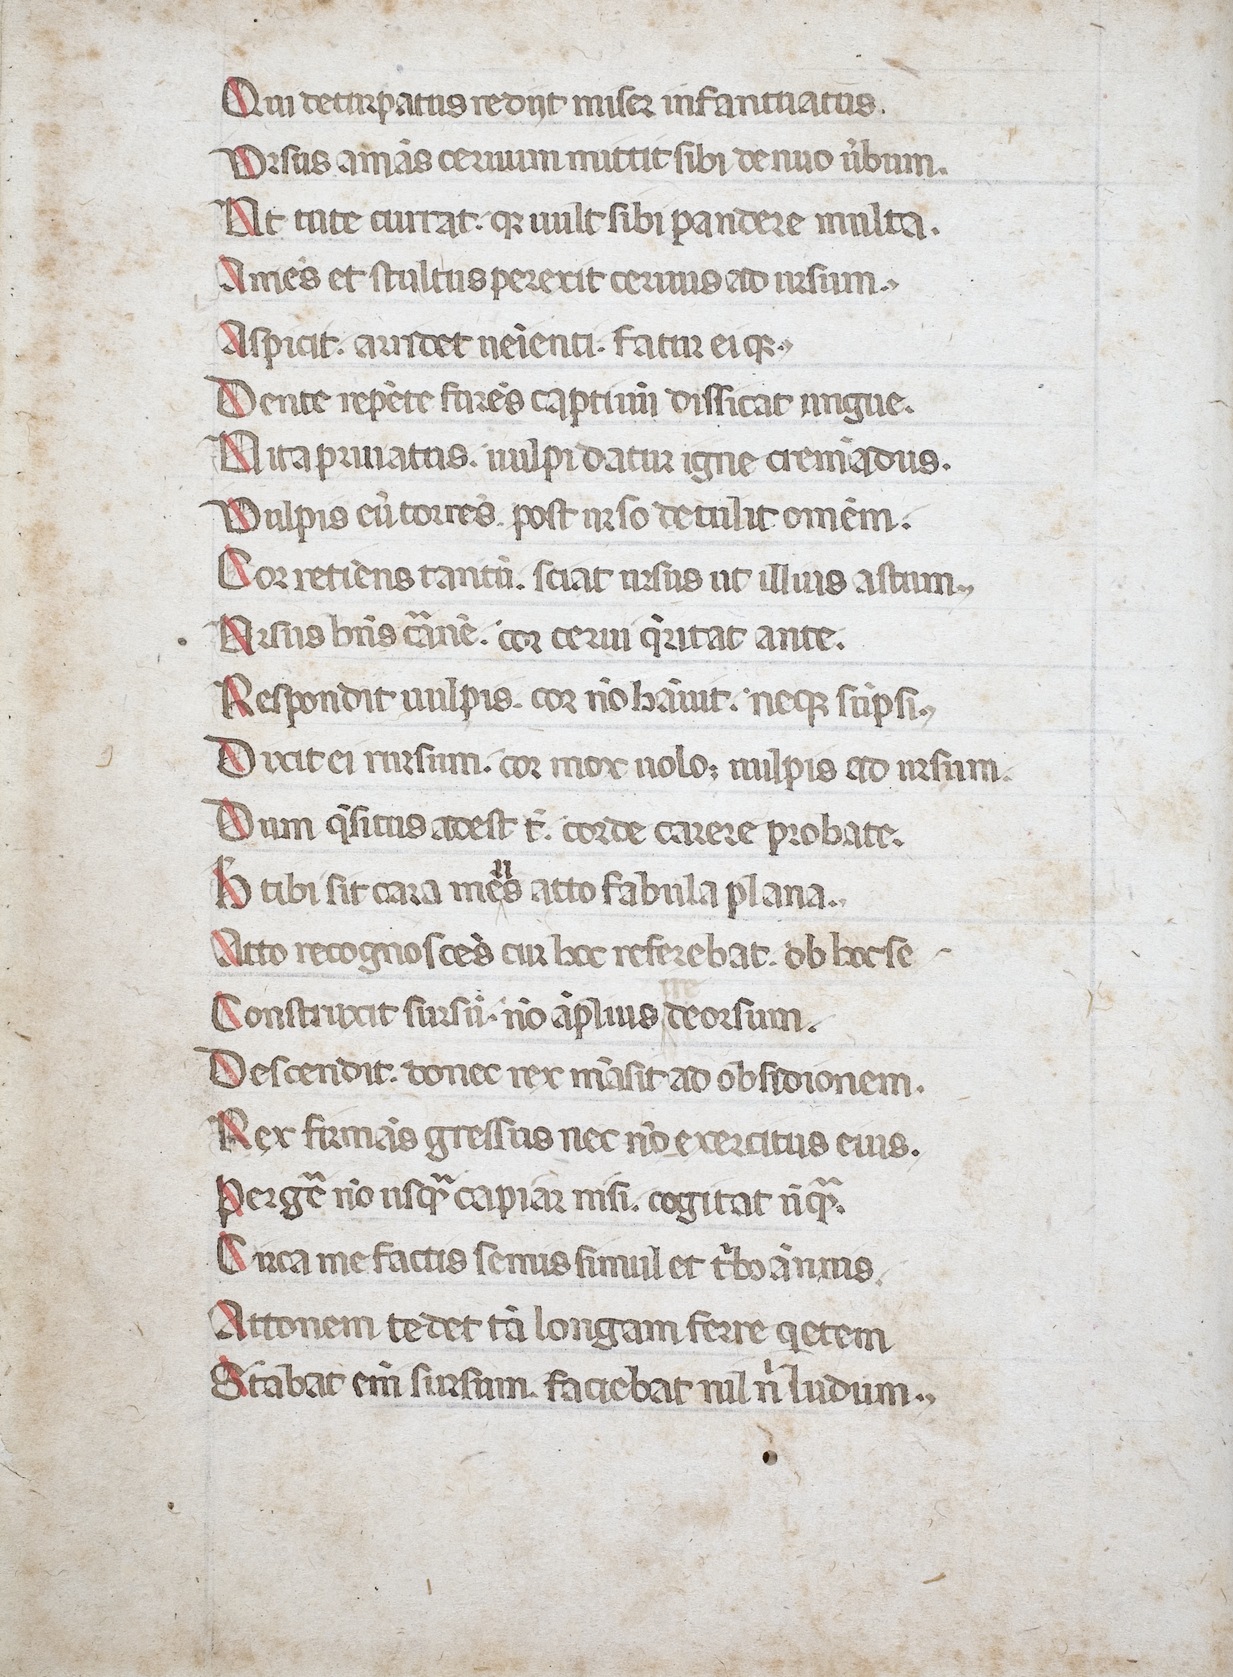 Qui deturpatus redijt miser infantuatus.
Vrsus amãs ceruum mittit sibi denuo ũbum.
Vt cute currat. qꝫ uult sibi pandere multa.
Amẽs et stultus perexit ceruus ad ursum.
Aspicit. arridet ueĩenti. fatur ei qꝫ.
Dente repẽte furẽs captum̃ dissicat ungue.
Vita priuatus. uulpi datur igne crem̃adus.
Vulpis eũ torrẽs. post urso detulit omẽm.
Cor retinẽns tantũ. sciat ursus ut illius astum.
Vrsus hñs carñe. cor cerui q̃ritat ante.
Respondit uulpis. cor nõ hãuit. neqꝫ sũpsi.
Dixit ei rursum. cor mox uolo; uulpis ad ursum.
Dum q̃situs adest t̃. corde carere probate.
H tibi sit cara mẽs atto fabula plana.
Atto recognoscẽs cur hoc referebat. ob hoc se
Construxit sursũ. nõ ãplius deorsum.
Descendit. donec rex mãsit ad obsidionem.
Rex firmãs gressus nec nõ exercitus eius.
Pergẽ nõ usqᷓ capiar nisi. cogitat ũqᷓ.
Circa me factis semis simul et t̃bo ãnnis.
Attonem tedet tã longam ferre qetem
Stabat em̃ sursum. faciebat nil nͥ ludum.